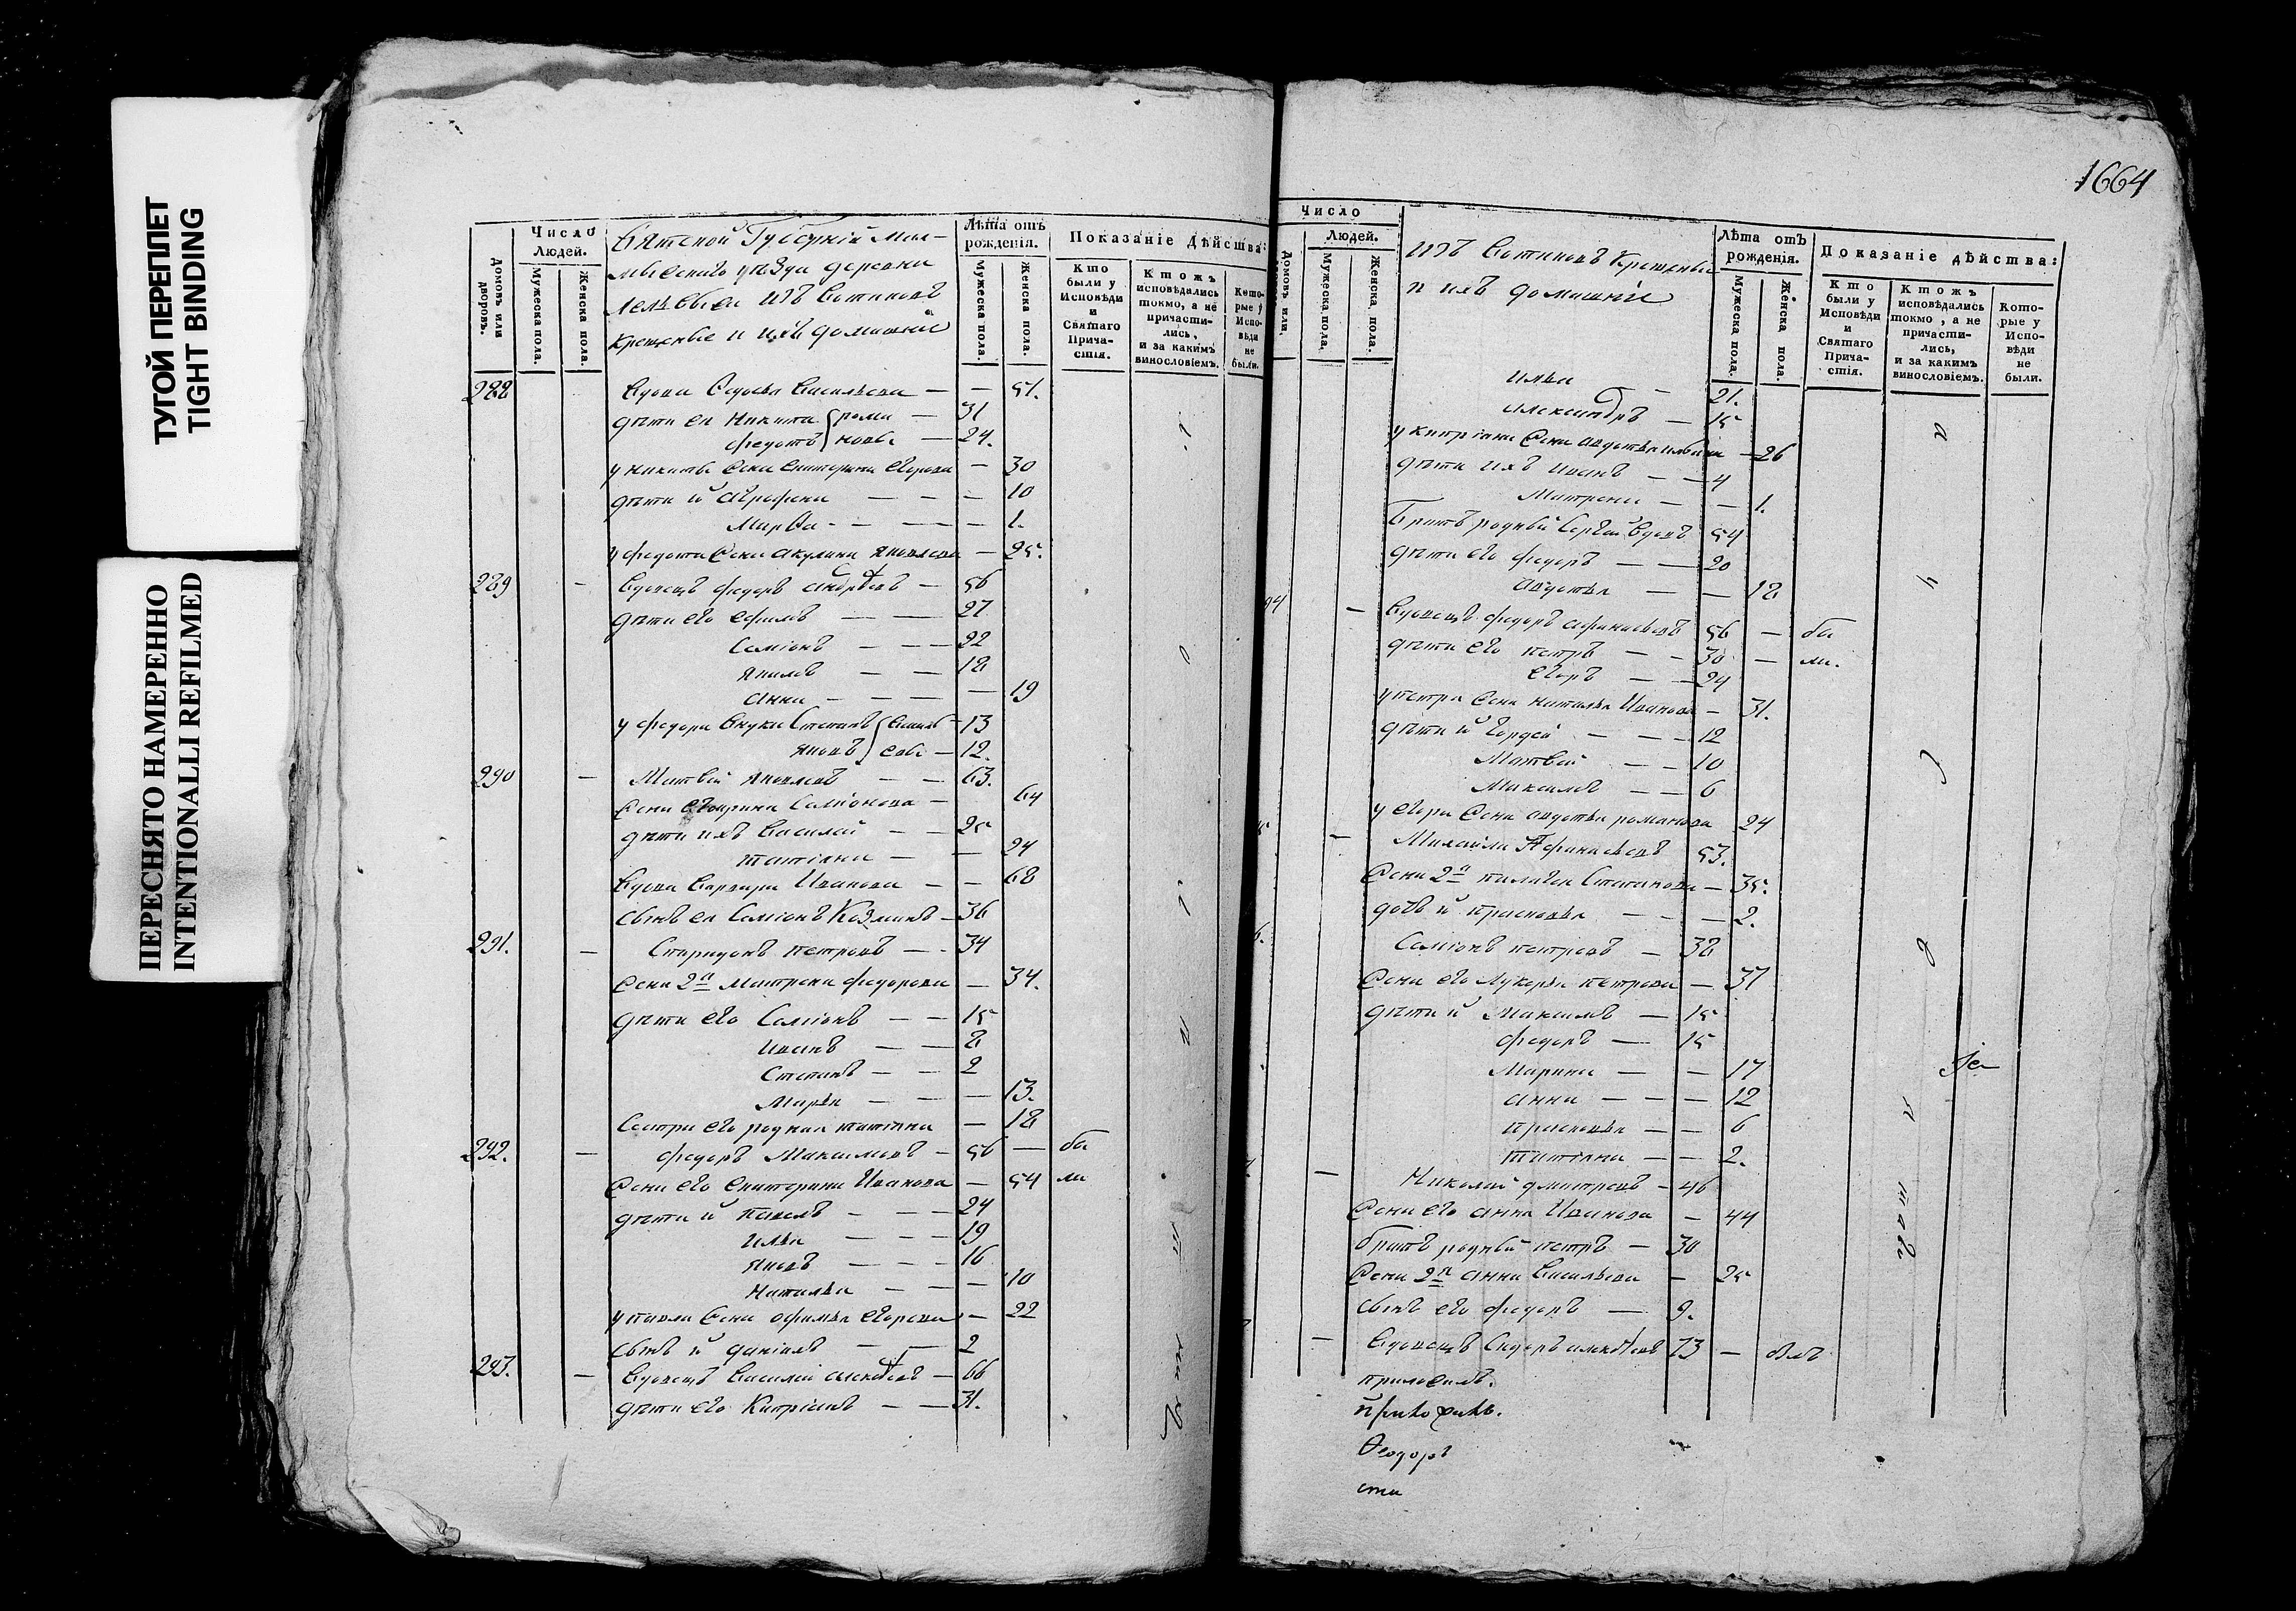 ТУГОЙ ПЕРЕПЛЕТ
TIGHT BINDING
ПЕРЕСНЯТО НАМЕРЕННО
INTENTIONALLI REFILMED
Домовъ или дворовъ.
Число Людей.
Мужеска пола.
Женска пола.
Вятской Губерніи Мал-
мыжскаго уѣзда деревни
изъ Вотяковъ
крещеные и ихъ домашніе
Лѣта отъ рожденія.
Мужеска пола.
Женска пола.
Показаніе Дѣйства:
Кто были у Исповѣди и Святаго Прича-стія.
Ктожъ исповѣдались токмо, а не причасти-лись, и за какимъ винословіемъ.
Кото-рые у Испо-вѣди не были.
288 Вдова Софья Васильева — — 51.
дѣти ея Никита рома — 31
Федотъ новы — 24.
у Никиты жена Екатерина Егорова — 30
дѣти и Аграфена — — — 10
Марѳа — — — 1.
у Федота жена Акулина Яковлева — 25.
289 — Вдовецъ Федоръ Андреевъ — 56
дѣти его Ефимъ — — 27
Семіонъ — — 22
Якимъ — — 18
Анна — — — — 19
у Федора внуки Степанъ 13
Яковъ — 12.
290 — Матвей Яковлевъ — — 63.
жена Семіонова — 64
дѣти ихъ Василей — — 25
Татіана — — 24
Вдова Варвара Иванова — — 68
сынъ ея Семіонъ Козминъ — 36
291. — Спиридонъ Петровъ — 34
жена 2я Матрена Федорова — 34.
дѣти его Семіонъ — — 15
Иванъ — — 8
Степанъ — — 2
Марья — — — 13.
Сестра его родная Татіана — 18
292. — Федоръ Максимовъ — 56 — бы
жена его Екатерина Иванова — 54 ли
дѣти и Павелъ — — — 24
Илья — — — 19
Яковъ — — — 16
Наталья — — — 10
у Павла жена Офимья Егорова — 22
сынъ и Даніилъ — — 2
293. — Вдовецъ Василей Алексѣевъ — 66
дѣти его Кипріанъ — — 31.
1664
Домовъ или
Число Людей.
Мужеска пола.
Женска пола.
изъ Вотяковъ Крещеные
и ихъ домашніе
Лѣта отъ рожденія.
Мужеска пола.
Женска пола.
Показаніе дѣйства:
Кто были у Исповѣди и Святаго Прича-стія.
Ктожъ исповѣдались токмо, а не причасти-лись, и за какимъ винословіемъ.
Кото-рые у Испо-вѣди не были.
Илья — 21.
Александръ — 15
у Кипріана жена Авдотья Ильина — 26
дѣти ихъ Иванъ — — 4
Матрена — — 1.
Братъ родный Сергей Вдовъ 54
дѣти его Федоръ — — 20
Авдотья — — 18
94 — Вдовецъ Федоръ Афанасьевъ 56 — бы
дѣти его Петръ — — 30 — ли.
Егоръ — — 24
у Петра жена Наталья Иванова — 31.
дѣти и Гордей — — — 12
Матвей — — 10
Максимъ — — 6
у Егора жена Авдотья Романова 24
— Михайла Афанасьевъ 53.
жена 2я Пелагея Степанова — 35.
дочь и Прасковья — — — 2.
6. Семіонъ Петровъ — 38
жена его Лукерья Петрова — 37
дѣти и Максимъ — 15
Федоръ — 15
Марина — — 17
Анна — — — 12
Прасковья — — 6
Татіана — — 2.
— Николай Дмитревъ — 46
жена его Анна Иванова — 44
братъ родный Петръ — 30
жена 2я Анна Васильева — 25
сынъ его Федоръ — 9.
— Вдовецъ Сидоръ Алексѣевъ 73 — былъ
Ѳеодоръ